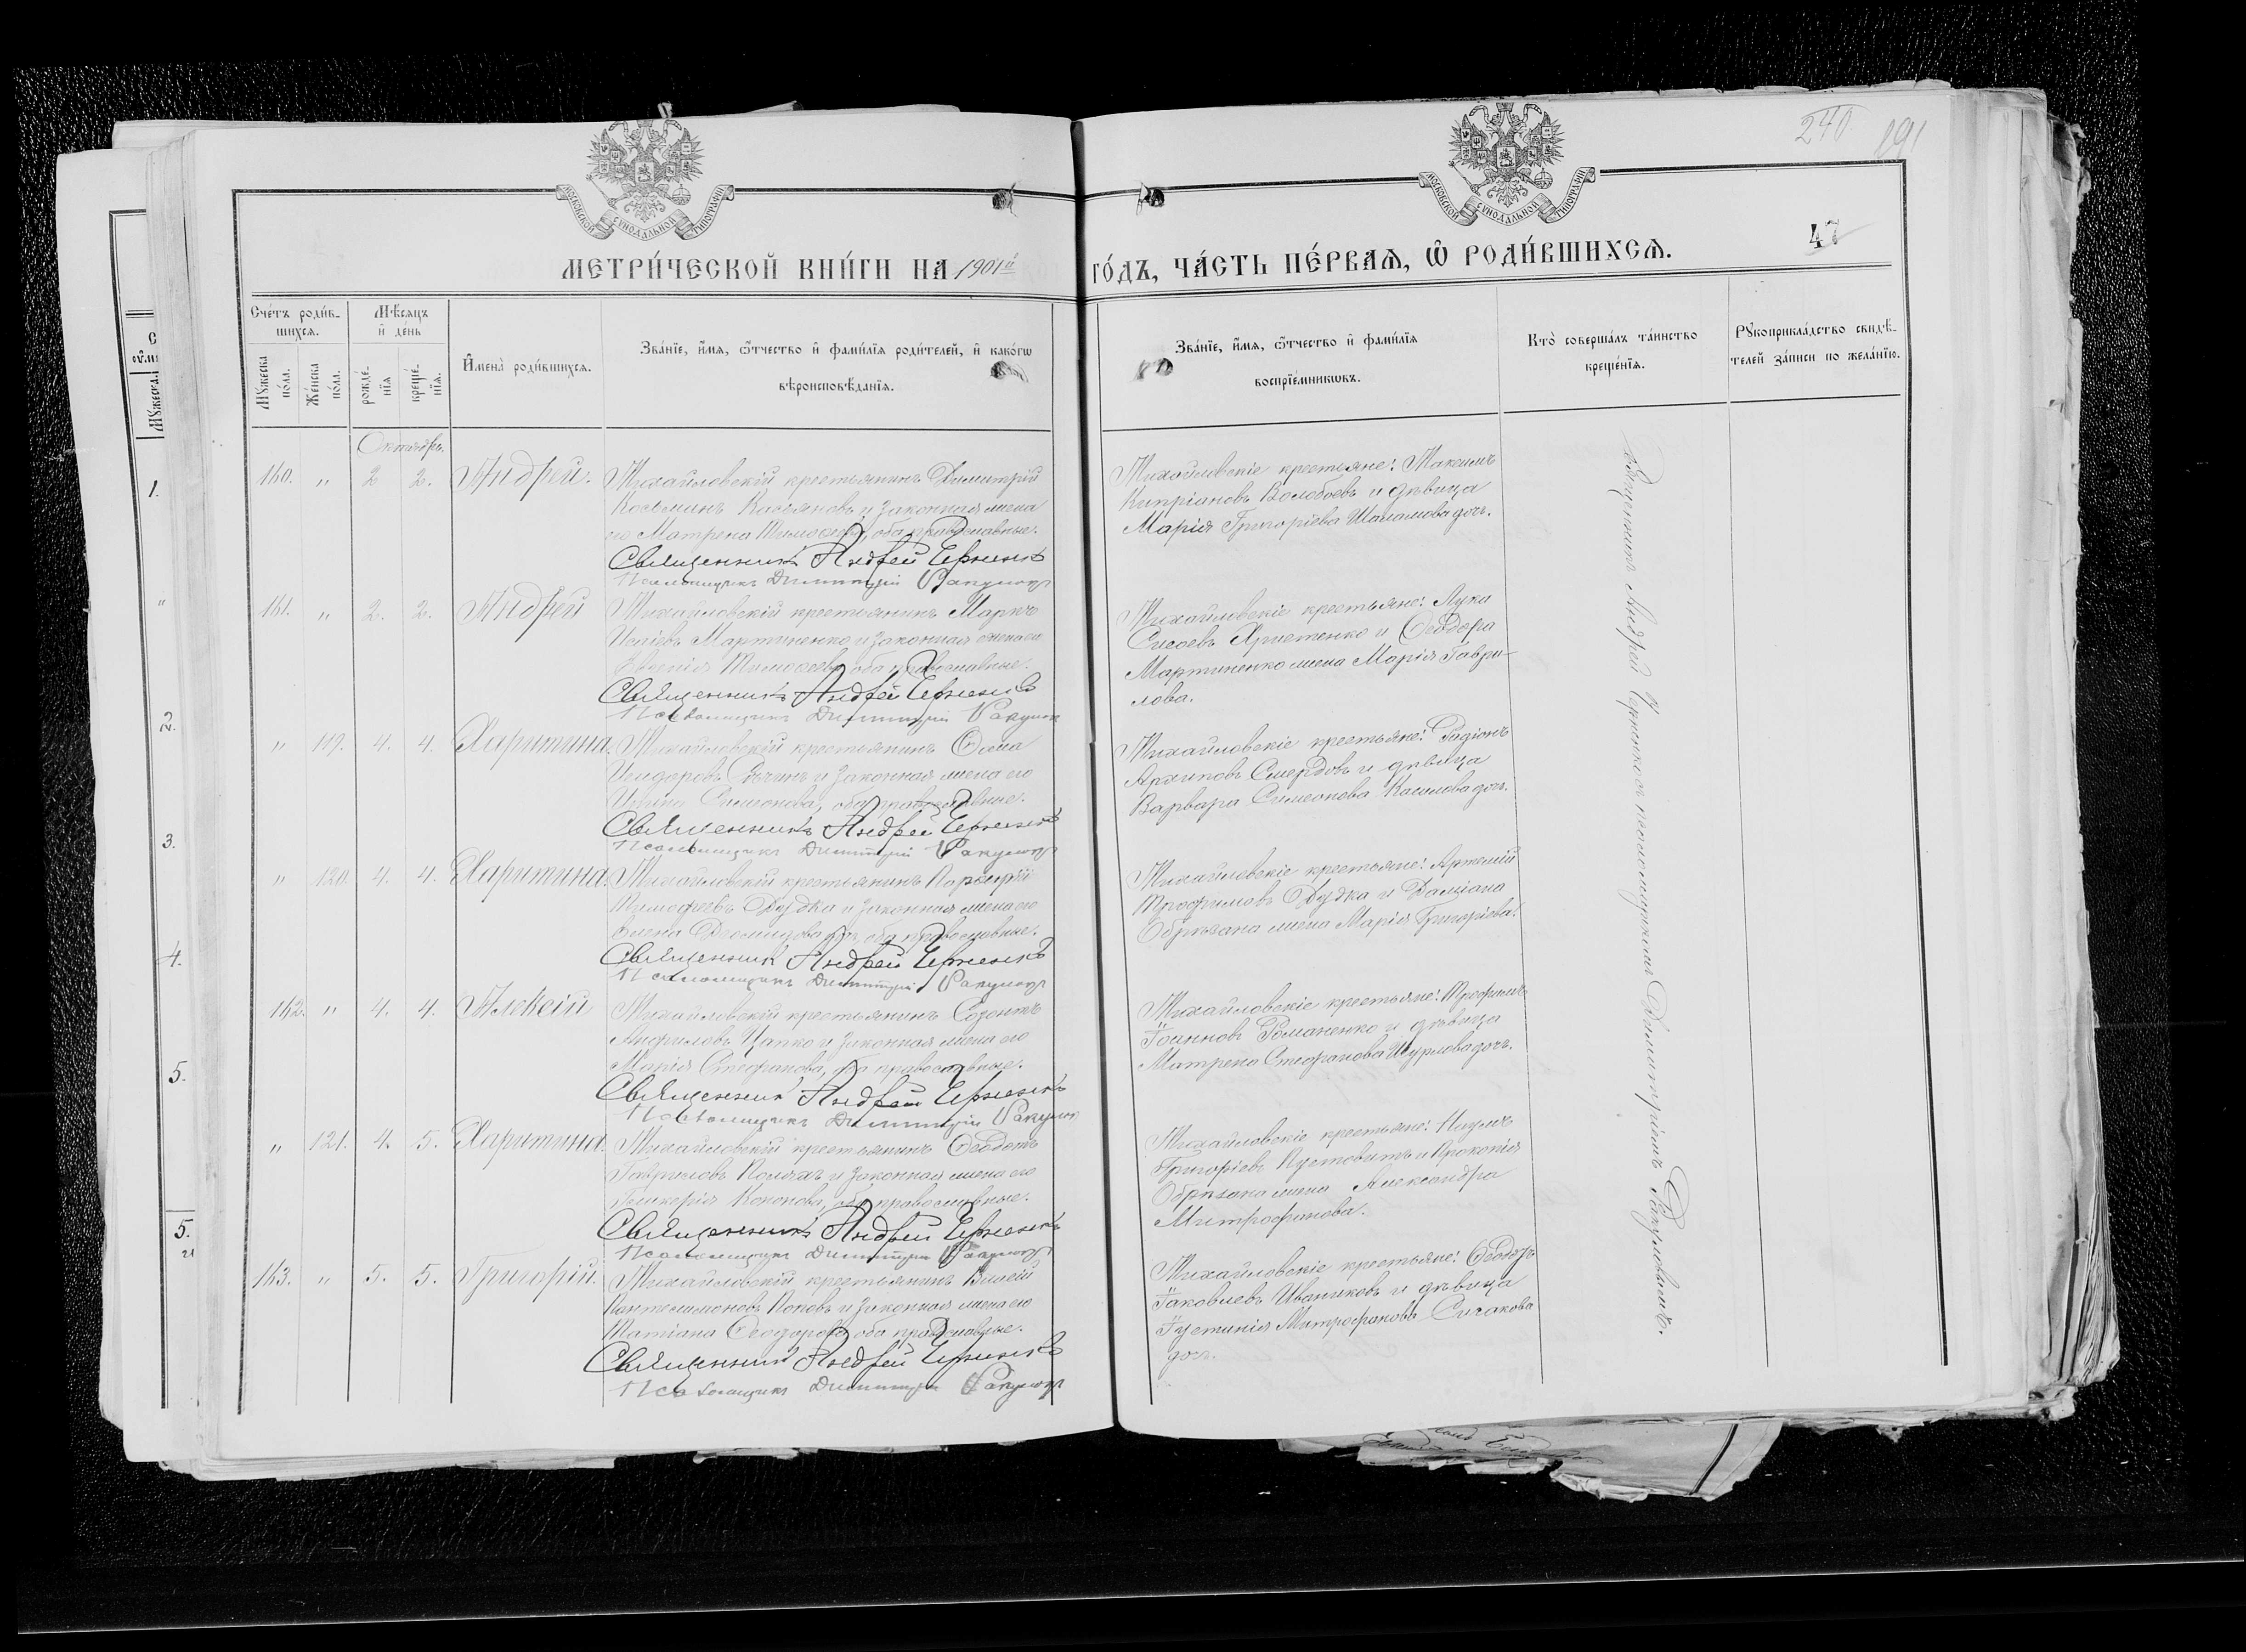 240. 191
47
МОСКОВСКОЙ СУНОДАЛЬНОЙ ТИПОГРАФІИ
МОСКОВСКОЙ СУНОДАЛЬНОЙ ТИПОГРАФІИ
МЕТРИ́ЧЕСКОЙ КНИ́ГИ НА 1901й ГО́ДЪ, ЧА́СТЬ ПЕ́РВАЯ, Ѿ РОДИ́ВШИХСѦ.
Сче́тъ роди́в-
шихсѧ.
Мѹ́жеска по́ла.
Же́нска по́ла.
Мѣ́сѧцъ
и҆ де́нь
рожде́-
нїѧ
креще́-
нїѧ.
И҆мена̀ роди́вшихсѧ.
Зва́нїе, и҆́мѧ, ѻ҆́тчество и҆ фами́лїѧ роди́телей, и҆ како́гѡ
вѣроисповѣ́данїѧ.
Зва́нїе, и҆́мѧ, ѻ҆́тчество и҆ фами́лїѧ
воспрїе́мникѡвъ.
Кто̀ соверша́лъ та́инство
креще́нїѧ.
Рѹкоприкла́дство свидѣ́-
телей за́писи по жела́нїю.
Октябрь.
160. " 2 2. Андрей. Михайловскій крестьянинъ Димитрій
Косьминъ Касьяновъ и законная жена
его Матрена Тимоѳеева, оба православные.
Священникъ Андрей Черненко
Псаломщикъ Димитрій Вакуловъ
Михайловскіе крестьяне: Максимъ
Кипріановъ Волобоевъ и дѣвица
Марія Григоріева Шаламова дочь.
161. " 2. 2. Андрей Михайловскій крестьянинъ Маркъ
Мартиненко и законная жена его
Евгенія Тимоѳеева, оба православные.
Священникъ Андрей Черненко
Псаломщикъ Димитрій Вакуловъ
Михайловскіе крестьяне: Лука
Сисоевъ Христенко и Ѳеодора
Мартиненко жена Марія Гаври-
лова.
" 119. 4. 4. Харитина. Михайловскій крестьянинъ Ѳома
Исидоровъ и законная жена его
Симеонова, оба православные.
Священникъ Андрей Черненко
Псаломщикъ Димитрій Вакуловъ
Михайловскіе крестьяне: Родіонъ
Архиповъ Смердовъ и дѣвица
Варвара Симеонова дочь.
" 120. 4. 4. Харитина. Михайловскій крестьянинъ Порфирій
Тимоѳеевъ Дудка и законная жена его
Елена оба православные.
Священникъ Андрей Черненко
Псаломщикъ Димитрій Вакуловъ
Михайловскіе крестьяне: Артемій
Трофимовъ Дудка и Даміана
Обризана жена Марія Григоріева.
162. " 4. 4. Алексій Михайловскій крестьянинъ Созонтъ
Анфиловъ Цапко и законная жена его
Марія Стефанова, оба православные.
Священникъ Андрей Черненко
Псаломщикъ Димитрій Вакуловъ
Михайловскіе крестьяне: Трофимъ
Іоанновъ Романенко и дѣвица
Матрена Стефанова дочь.
" 121. 4. 5. Харитина. Михайловскій крестьянинъ Ѳеодотъ
Гавриловъ и законная жена его
Гликерія Кононова, оба православные.
Священникъ Андрей Черненко
Псаломщикъ Димитрій Вакуловъ
Михайловскіе крестьяне: Наумъ
Григоріевъ Пустовитъ и Прокопія
Обризана жена Александра
Митрофанова.
163. " 5. 5. Григорій. Михайловскій крестьянинъ
Пантелимоновъ Поповъ и законная жена его
Татіана Ѳеодорова, оба православные.
Священникъ Андрей Черненко
Псаломщикъ Димитрій Вакуловъ
Михайловскіе крестьяне: Ѳеодоръ
Іаковлевъ Иваниковъ и дѣвица
Іустинія Митрофанова
дочь.
Священникъ Андрей Черненко съ псаломщикомъ Димитріемъ Вакуловымъ.
1.
"
2.
3.
4.
5.
5.
21